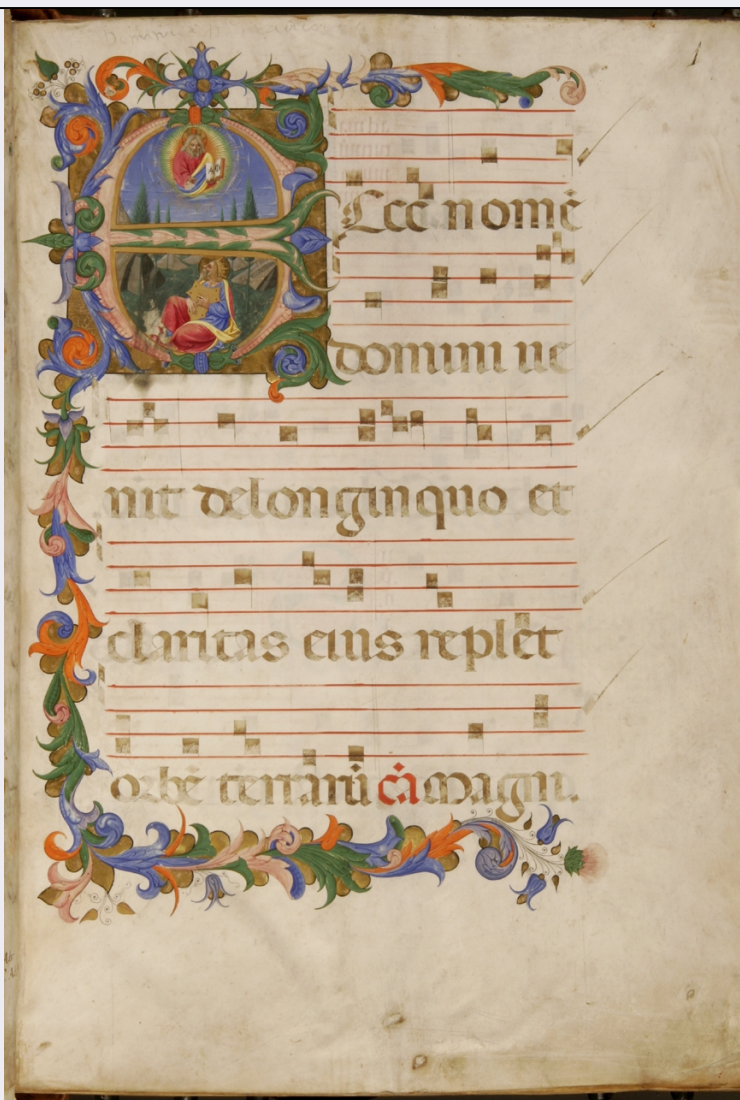 Ecce nomē
domini ue
nit de longinquo et
claritas eius replet
orbē terrarū ca͞ Magni.